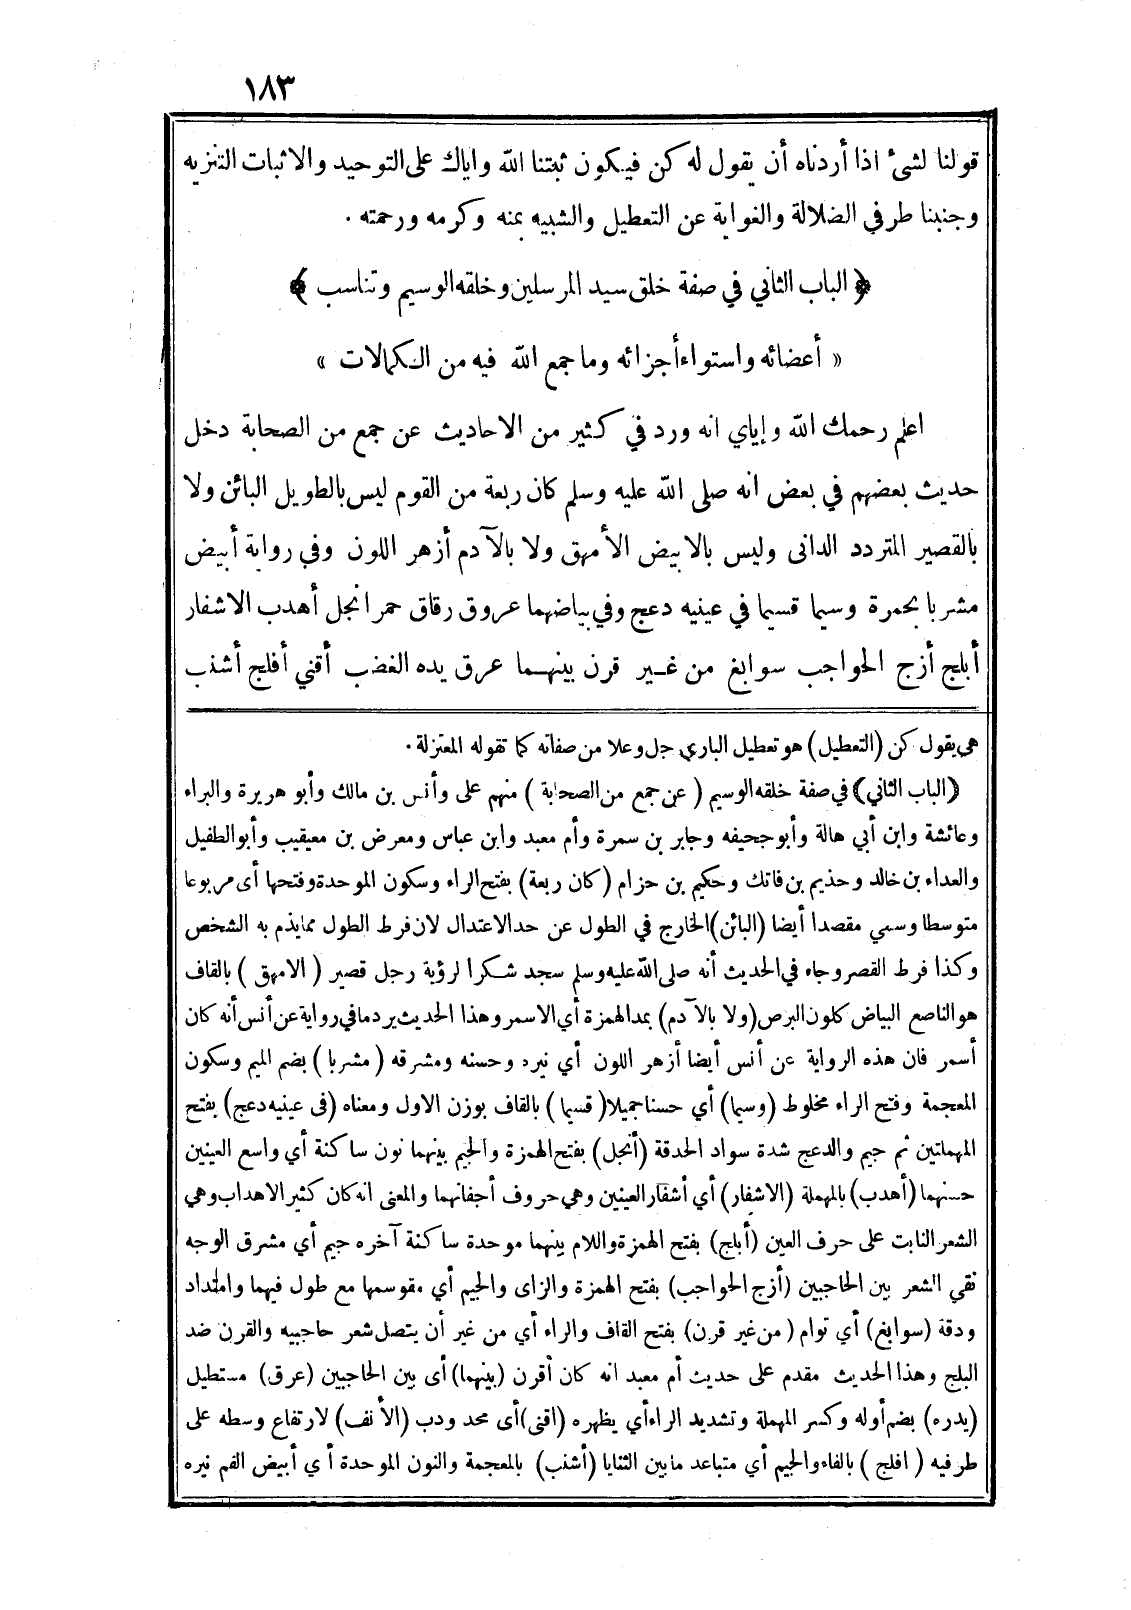 ١٨٣
قولنا لشئ اذا أردناه أن يقول له كن فيكون ثبتنا الله واياك على التوحيد والاثبات التنزيه
وجنبنا طرفي الضلالة والغواية عن التعطيل والشبيه بمنه وكرمه ورحمته .
﴿ الباب الثاني في صفة خلق سيد المرسلين وخلقه الوسيم وتناسب ﴾
« أعضائه واستواء أجزائه وما جمع الله فيه من الكمالات »
اعلم رحمك الله وإياي انه ورد في كثير من الاحاديث عن جمع من الصحابة دخل
حديث بعضهم في بعض انه صلى الله عليه وسلم كان ربعة من القوم ليس بالطويل البائن ولا
بالقصير المتردد الدانى وليس بالابيض الأمهق ولا بالآدم أزهر اللون وفي رواية أبيض
مشربا بحمرة وسيما قسيما في عينيه دعج وفي بياضهما عروق رقاق حمر انجل أهدب الاشفار
أبلج أزج الحواجب سوابغ من غير قرن بينهما عرق يده الغضب أقني أفلج أشنب
هي يقول كن (التعطيل) هو تعطيل الباري جل وعلا من صفاته كما تقوله المعتزلة .
﴿الباب الثاني﴾ في صفة خلقه الوسيم ( عن جمع من الصحابة ) منهم على وأنس بن مالك وأبو هريرة والبراء
وعائشة وابن أبي هالة وأبو جحيفه وجابر بن سمرة وأم معبد وابن عباس ومعرض بن معيقيب وأبو الطفيل
والعداء بن خالد وحذيم بن فاتك وحكيم بن حزام (كان ربعة) بفتح الراء وسكون الموحدة وفتحها أى مربوعا
متوسطا وسمي مقصدا أيضا (البائن) الخارج في الطول عن حد الاعتدال لان فرط الطول مما يذم به الشخص
وكذا فرط القصر وجاء في الحديث أنه صلى الله عليه وسلم سجد شكرا لرؤية رجل قصير ( الامهق ) بالقاف
هو الناصع البياض كلون البرص (ولا بالآدم) بمد الهمزة أي الاسمر وهذا الحديث يرد ما في رواية عن أنس أنه كان
أسمر فان هذه الرواية عن أنس أيضا أزهر اللون أي نيره وحسنه ومشرقه ( مشربا ) بضم الميم وسكون
المعجمة وفتح الراء مخلوط (وسيما) أي حسنا جميلا ( قسيما ) بالقاف بوزن الاول ومعناه (فى عينيه دعج) بفتح
المهملتين ثم جيم والدعج شدة سواد الحدقة (أنجل) بفتح الهمزة والجيم بينهما نون ساكنة أي واسع العينين
حسنهما (أهدب) بالمهملة (الاشفار) أي أشفار العينين وهي حروف أجفانهما والمعنى انه كان كثير الاهداب وهي
الشعر النابت على حرف العين (أبلج) بفتح الهمزة واللام بينهما موحدة ساكنة آخره جيم أي مشرق الوجه
نقي الشعر بين الحاجبين (أزج الحواجب) بفتح الهمزة والزاى والجيم أي مقوسهما مع طول فيهما وامتداد
ودقة (سوابغ) أي توام ( من غير قرن) بفتح القاف والراء أي من غير أن يتصل شعر حاجبيه والقرن ضد
البلج وهذا الحديث مقدم على حديث أم معبد انه كان أقرن (بينهما) أى بين الحاجبين (عرق) مستطيل
(يدره) بضم أوله وكسر المهملة وتشديد الراء أي يظهره (اقنى) أى محد ودب (الأنف) لارتفاع وسطه على
طرفيه ( افلج ) بالفاء والجيم أي متباعد ما بين الثنايا (أشنب) بالمعجمة والنون الموحدة أي أبيض الفم نيره